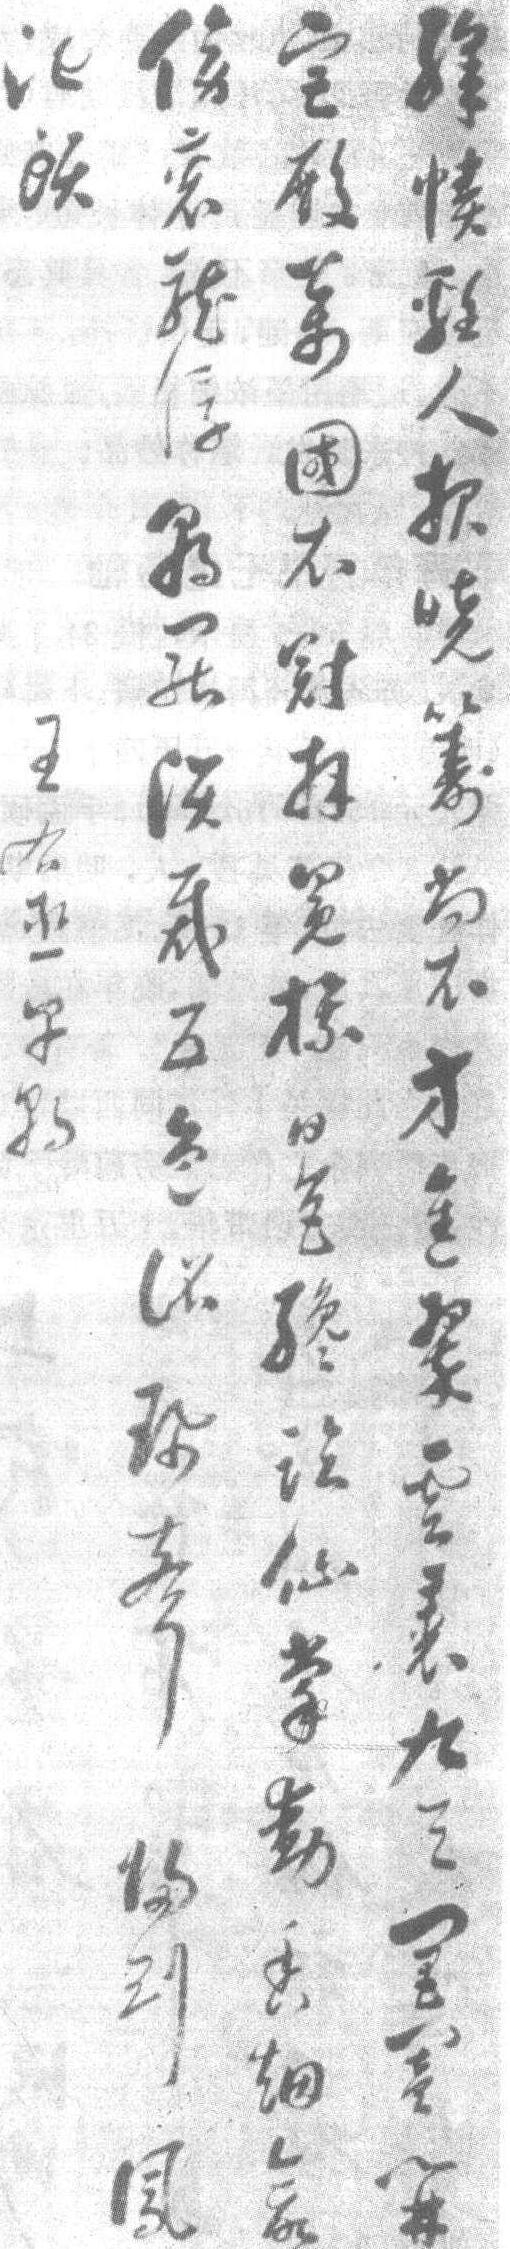 絳幘雞人報曉籌尚衣方進翠雲裘九天閶闔開
宮殿萬國衣冠拜冕旒日色纔臨仙掌動香烟欲
傍袞龍浮朝罷須裁五色詔珮聲歸到鳳
池頭 王右丞早朝